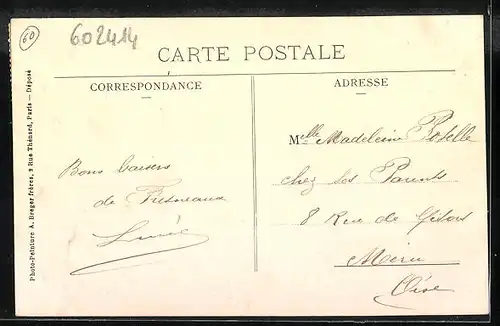 60
602414
CARTE POSTALE
CORRESPONDANCE
ADRESSE
Photo-Peinture A. Breger frères, 9 Rue Thénard, Paris — Déposé
Bons baisers
de Fresneaux
Melle Madeleine
chez ses Parents
8 Rue de
Méru
Oise